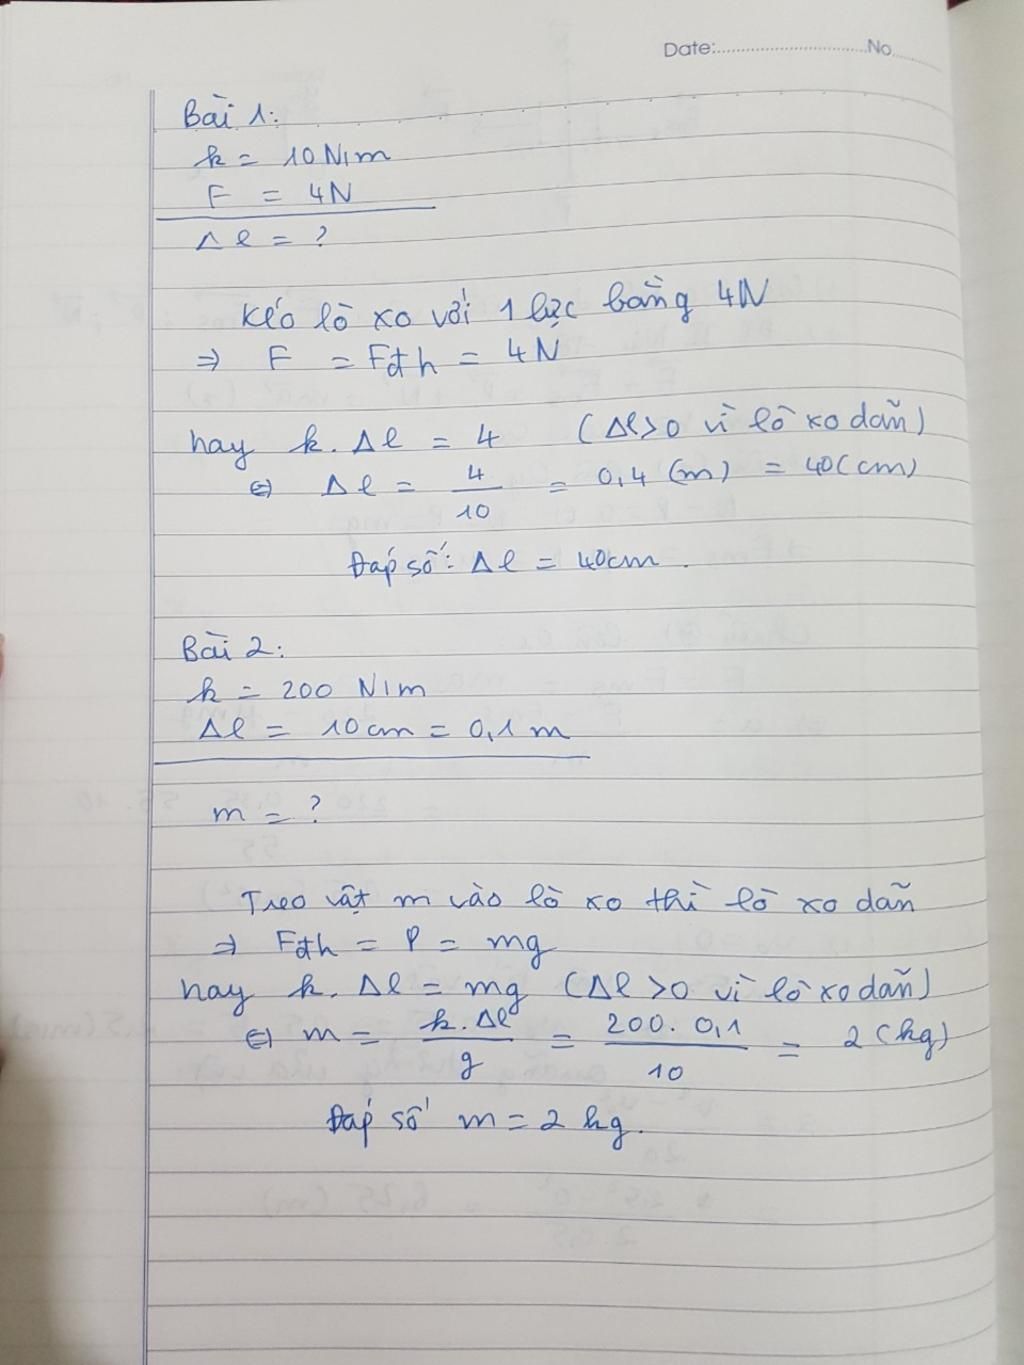 Date:............................No......
Bài 1:
k = 10 N/m
F = 4N
Δl = ?
Kéo lò xo với 1 lực bằng 4N
⇒ F = Fđh = 4N
hay k. Δl = 4 (Δl>0 vì lò xo dãn)
⇔ Δl = 4/10 = 0,4 (m) = 40(cm)
Đáp số: Δl = 40cm.
Bài 2:
k = 200 N/m
Δl = 10cm = 0,1 m
m = ?
Treo vật m vào lò xo thì lò xo dãn
⇒ Fđh = P = mg
hay k. Δl = mg (Δl >0 vì lò xo dãn)
⇔ m = k.Δl/g = 200. 0,1/10 = 2 (kg)
Đáp số m = 2 kg.